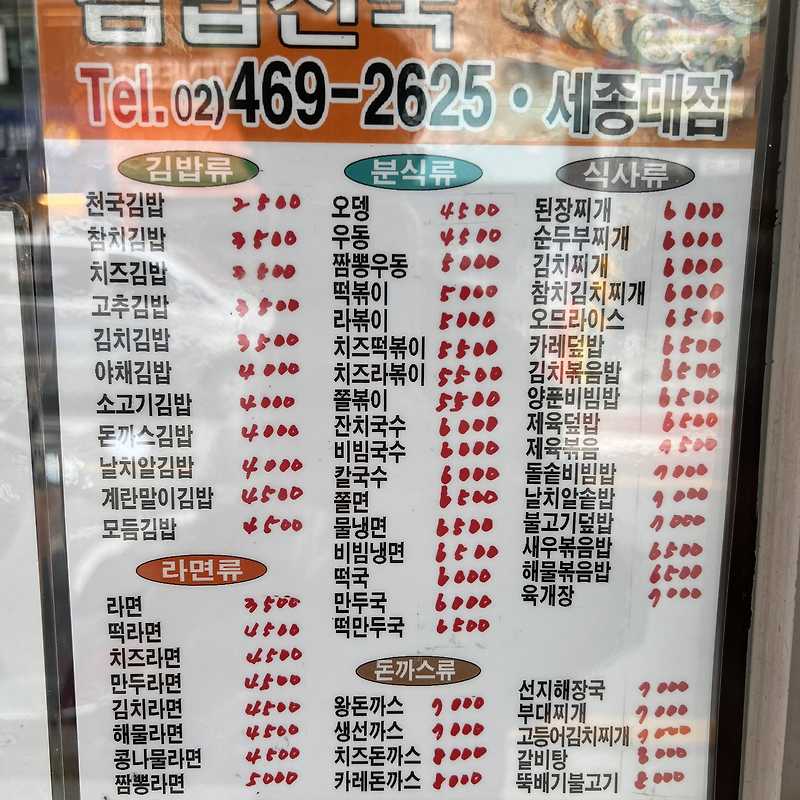 김밥천국
Tel. 02)469-2625 · 세종대점
김밥류
천국김밥 2500
참치김밥 3500
치즈김밥 3500
고추김밥 3500
김치김밥 3500
야채김밥 4000
소고기김밥 4000
돈까스김밥 4000
날치알김밥 4000
계란말이김밥 4500
모듬김밥 4500
라면류
라면 3500
떡라면 4500
치즈라면 4500
만두라면 4500
김치라면 4500
해물라면 4500
콩나물라면 4500
짬뽕라면 5000
분식류
오뎅 4500
우동 4500
짬뽕우동 5000
떡볶이 5000
라볶이 5000
치즈떡볶이 5500
치즈라볶이 5500
쫄볶이 5500
잔치국수 6000
비빔국수 6000
칼국수 6000
쫄면 6500
물냉면 6500
비빔냉면 6500
떡국 6000
만두국 6000
떡만두국 6500
돈까스류
왕돈까스 7000
생선까스 7000
치즈돈까스 8000
카레돈까스 8000
식사류
된장찌개 6000
순두부찌개 6000
김치찌개 6000
참치김치찌개 6000
오므라이스 6500
카레덮밥 6500
김치볶음밥 6500
양푼비빔밥 6500
제육덮밥 6500
제육볶음 7500
돌솥비빔밥 7000
날치알솥밥 7000
불고기덮밥 7000
새우볶음밥 6500
해물볶음밥 6500
육개장 7000
선지해장국 7000
부대찌개 7000
고등어김치찌개 7500
갈비탕 8000
뚝배기불고기 8000